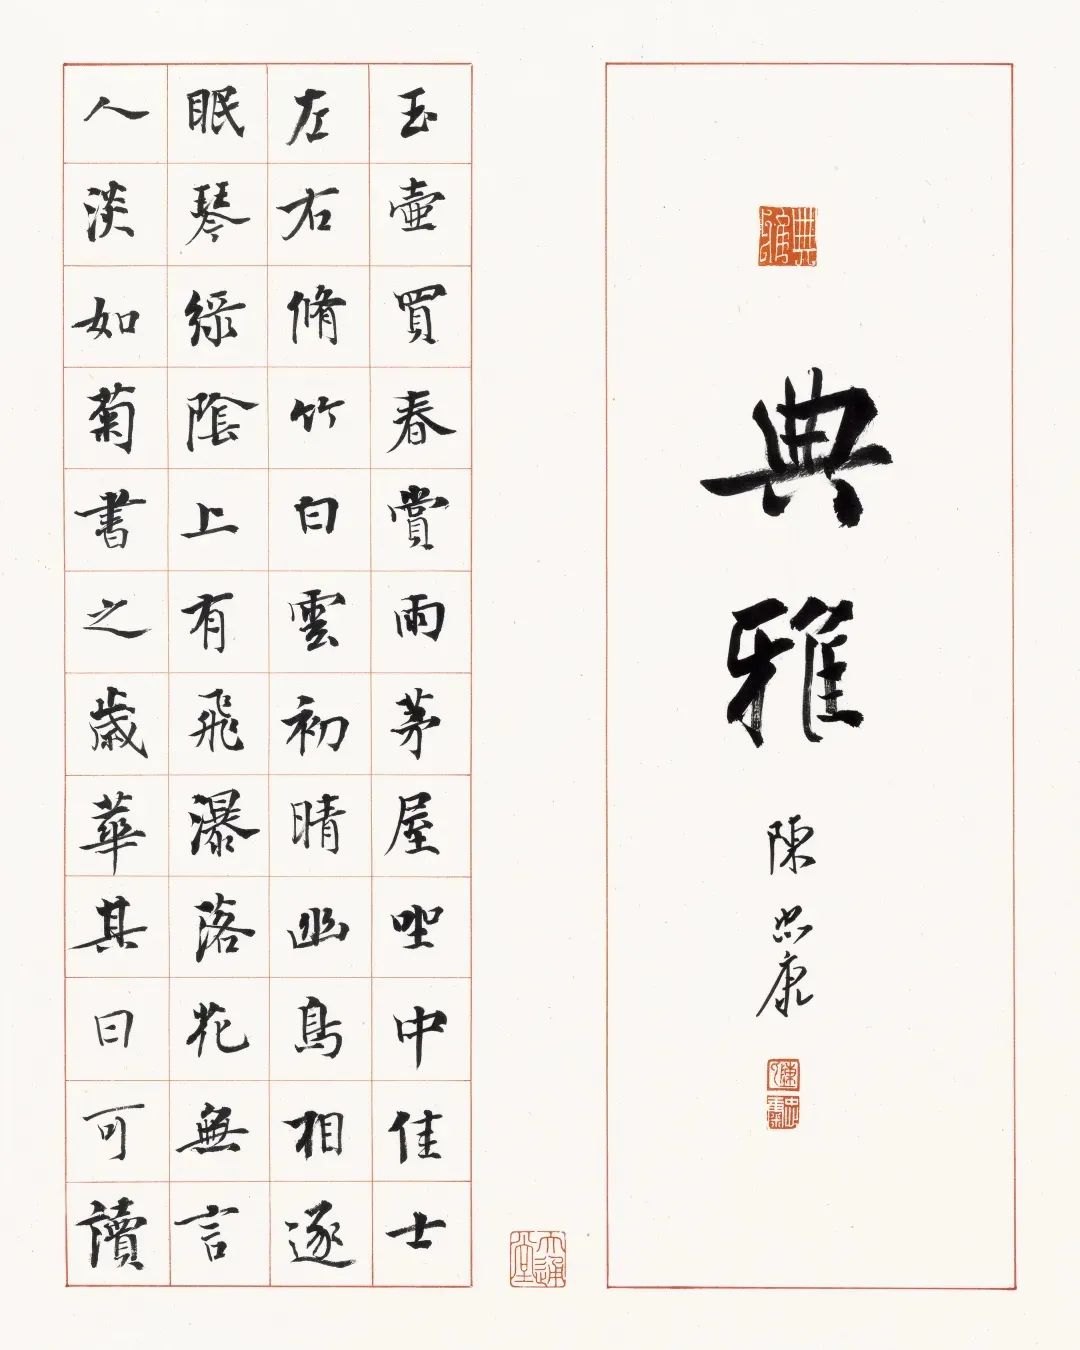 典雅
典雅
陳忠康
陳
忠康
玉壺買春賞雨茅屋坐中佳士
左右脩竹白雲初晴幽鳥相逐
眠琴綠陰上有飛瀑落花無言
人淡如菊書之歲華其曰可讀